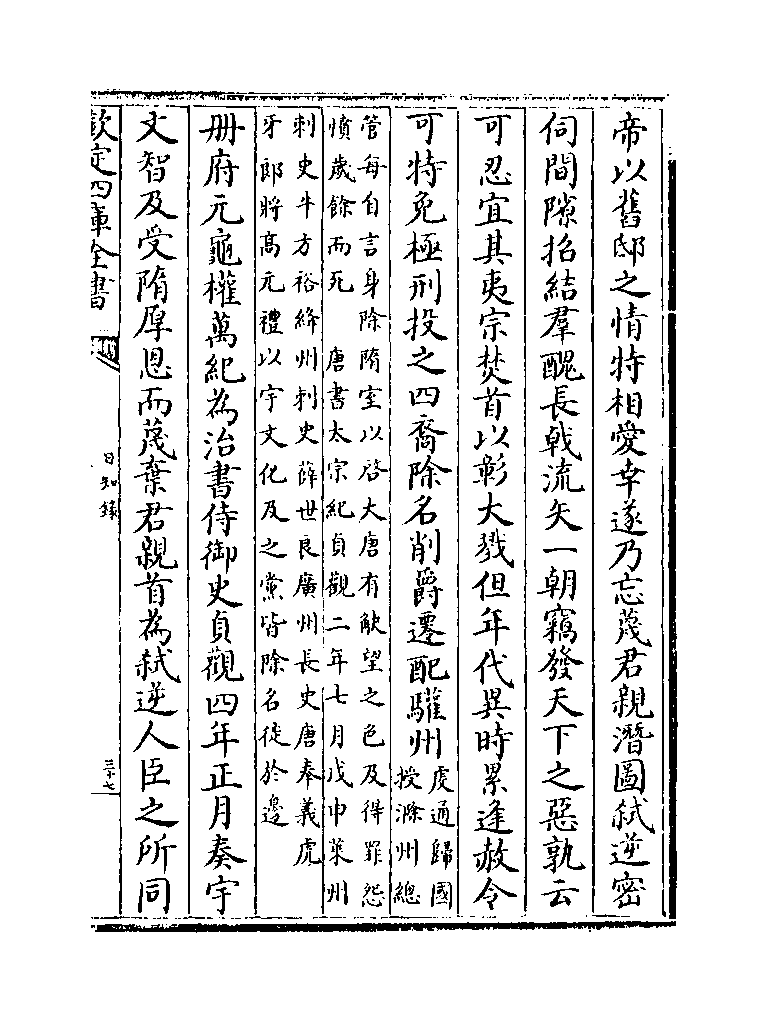 帝以舊邸之情特相愛幸遂乃忘蔑君親潛圖弑逆密
伺間隙招結羣醜長戟流矢一朝竊發天下之惡孰云
可忍宜其夷宗焚首以彰大戮但年代異時累逢赦令
可特免極刑投之四裔除名削爵遷配驩州
䖍通歸國
授滁州總
管每自言身除隋室以啓大唐有觖望之色及得罪怨
憤歲餘而死　唐書太宗紀貞觀二年七月戊申萊州
刺史牛方裕絳州刺史薛世良廣州長史唐奉義虎
牙郎將髙元禮以宇文化及之黨皆除名徙於邊
册府元龜權萬紀為治書侍御史貞觀四年正月奏宇
文智及受隋厚恩而蔑棄君親首為弑逆人臣之所同
欽定四庫全書
日知錄
三十七